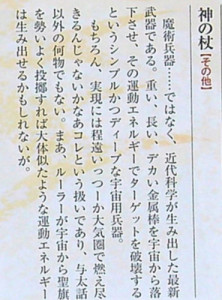 神の杖【その他】
魔術兵器……ではなく、近代科学が生み出した最新
武器である。重い、長い、デカい金属棒を宇宙から落
下させ、その運動エネルギーでターゲットを破壊する
というシンプルかつディープな宇宙用兵器。
もちろん、実現には程遠いっつーか大気圏で燃え尽
きるんじゃないかなあコレという扱いであり、与太話
以外の何物でもない。まあ、ルーラーが宇宙から聖旗
を勢いよく投擲すれば大体似たような運動エネルギー
は生み出せるかもしれないが。